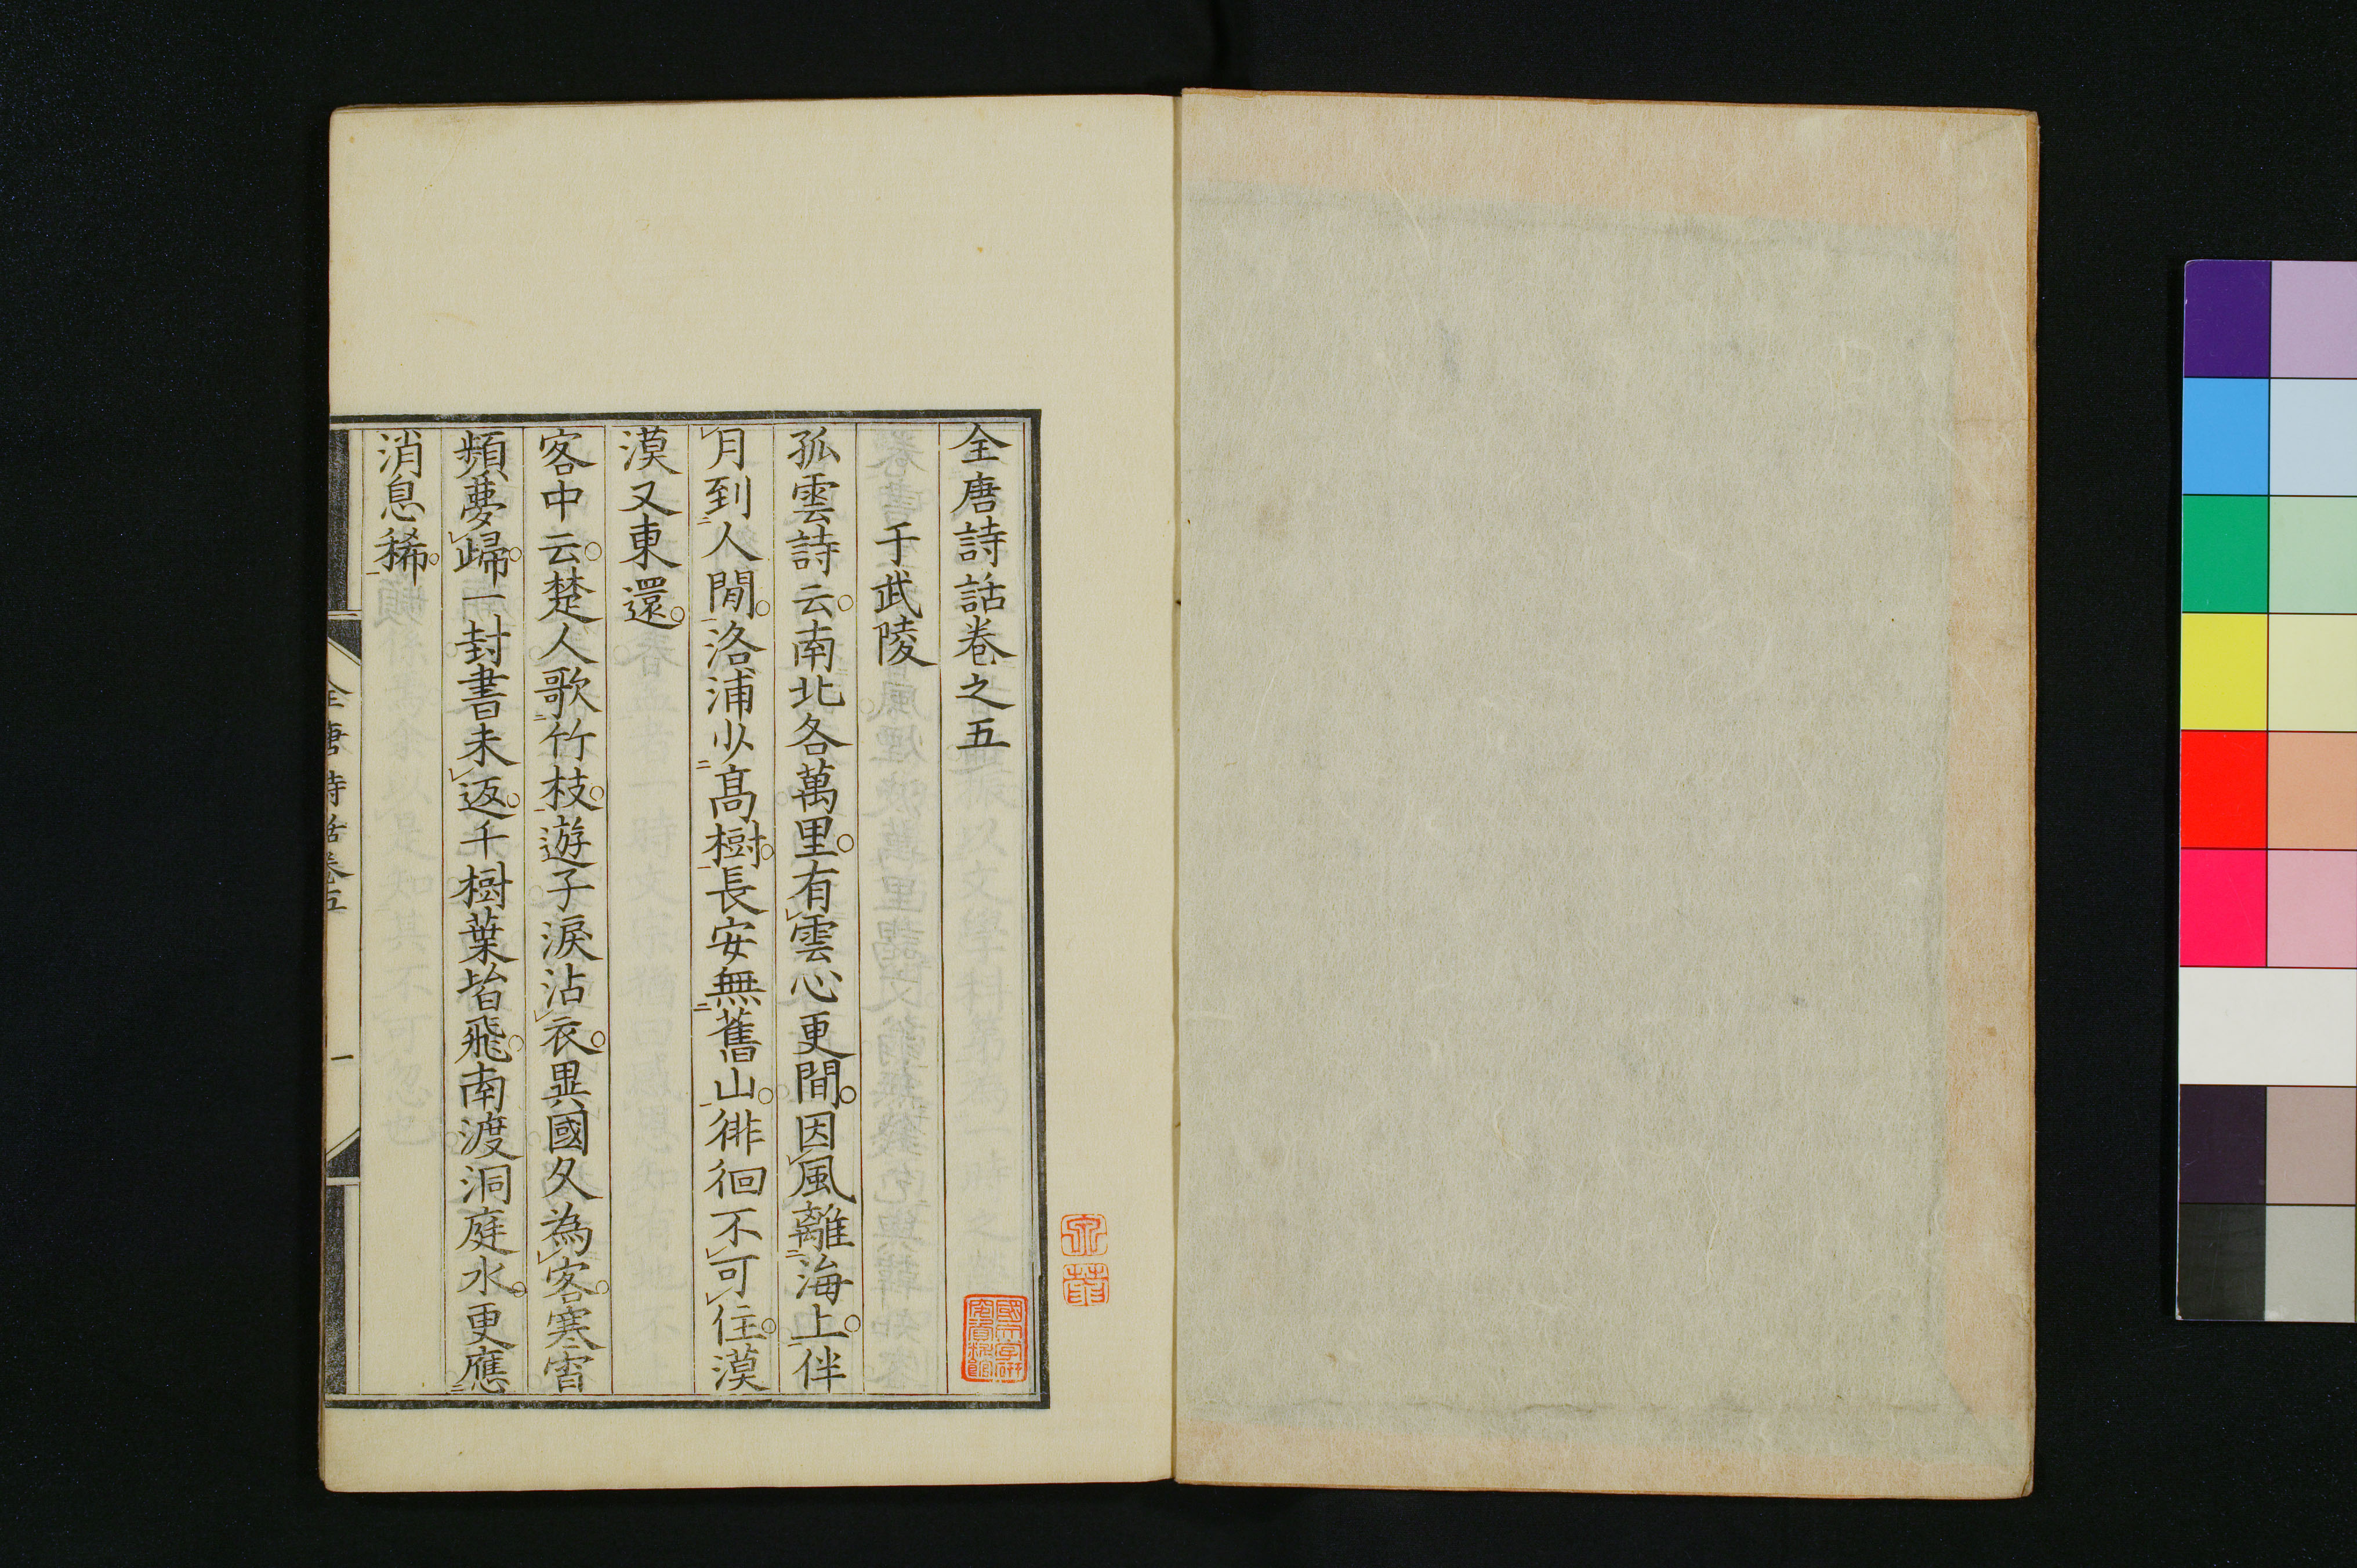 全唐詩話卷之五
于武陵
孤雲詩云。南北各萬里。有雲心更間。因風離海上。伴
月到人間。洛浦少高樹。長安無舊山。徘徊不可住。漠
漠又東還。
客中云。楚人歌竹枝。遊子淚沾衣。異國久為客。寒宵
頻夢歸。一封書未返。千樹葉皆飛。南渡洞庭水。更應
消息稀。
全唐詩話卷五
一